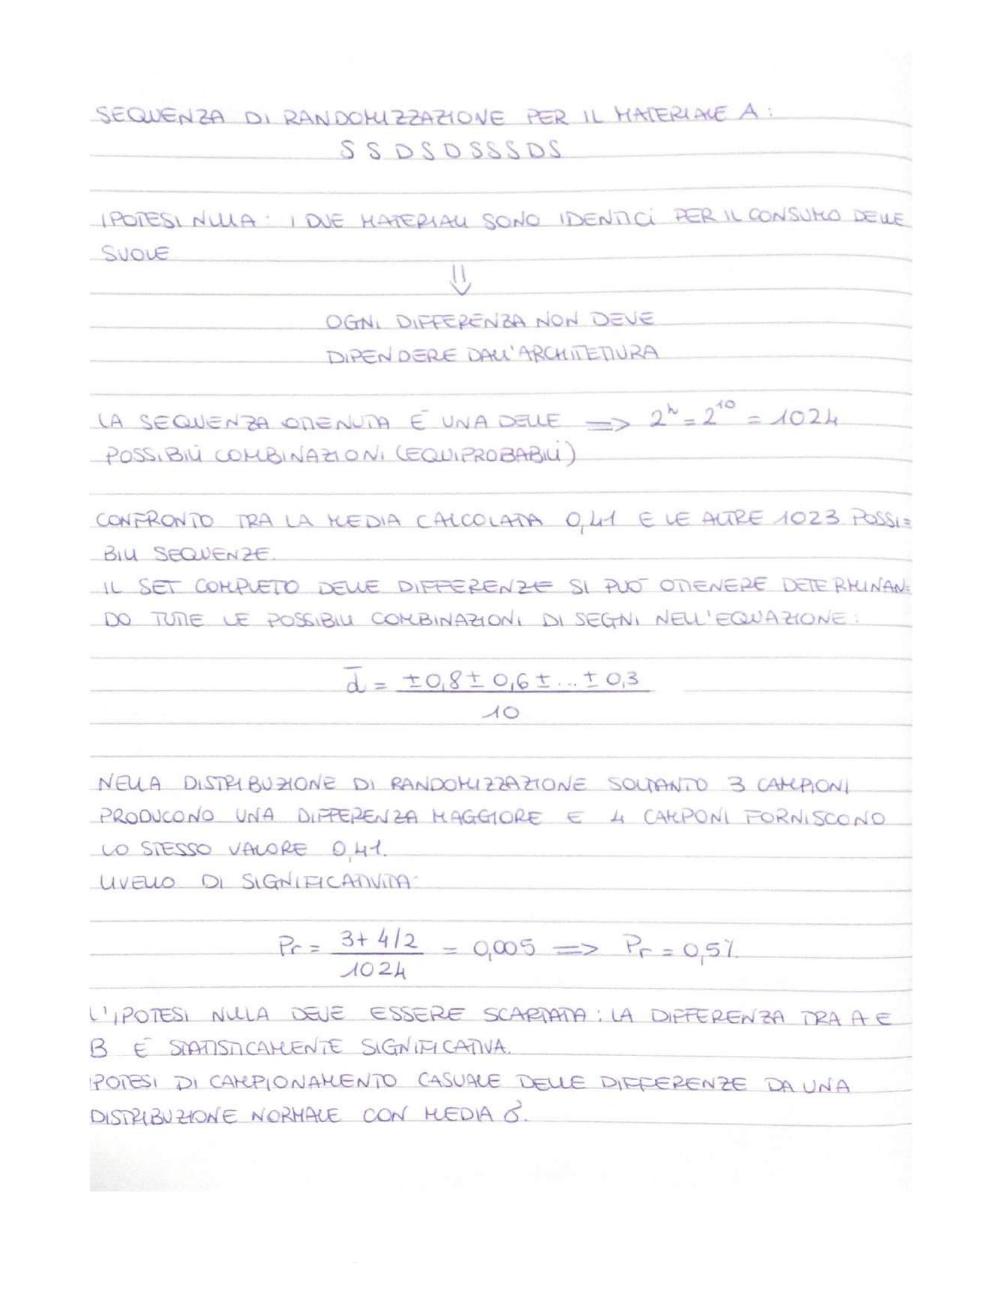 SEQUENZA DI RANDOMIZZAZIONE PER IL MATERIALE A:
S S D S D S S S D S
IPOTESI NULLA: I DUE MATERIALI SONO IDENTICI PER IL CONSUMO DELLE
SUOLE
⇓
OGNI DIFFERENZA NON DEVE
DIPENDERE DALL'ARCHITETTURA
LA SEQUENZA OTTENUTA È UNA DELLE => 2^n = 2^10 = 1024
POSSIBILI COMBINAZIONI (EQUIPROBABILI)
CONFRONTO TRA LA MEDIA CALCOLATA 0,41 E LE ALTRE 1023 POSSI=
BILI SEQUENZE.
IL SET COMPLETO DELLE DIFFERENZE SI PUÒ OTTENERE DETERMINAN=
DO TUTTE LE POSSIBILI COMBINAZIONI DI SEGNI NELL'EQUAZIONE:
d̄ = ±0,8 ± 0,6 ± ... ± 0,3
10
NELLA DISTRIBUZIONE DI RANDOMIZZAZIONE SOLTANTO 3 CAMPIONI
PRODUCONO UNA DIFFERENZA MAGGIORE E 4 CAMPONI FORNISCONO
LO STESSO VALORE 0,41.
LIVELLO DI SIGNIFICATIVITÀ:
Pr = 3+4/2 = 0,005 => Pr = 0,5%
1024
L'IPOTESI NULLA DEVE ESSERE SCARTATA: LA DIFFERENZA TRA A E
B È STATISTICAMENTE SIGNIFICATIVA.
IPOTESI DI CAMPIONAMENTO CASUALE DELLE DIFFERENZE DA UNA
DISTRIBUZIONE NORMALE CON MEDIA δ.